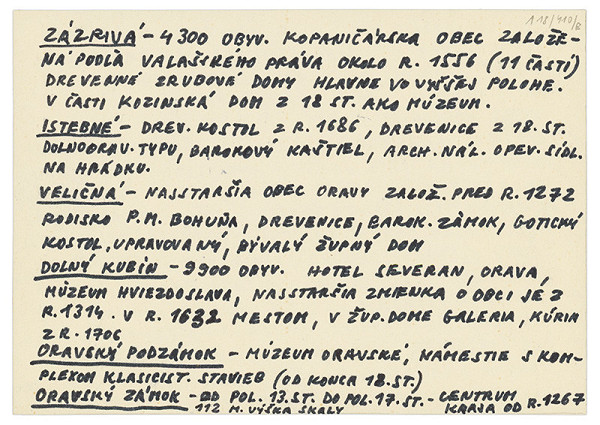 118/410/8
ZÁZRIVÁ - 4300 OBYV. KOPANIČÁRSKA OBEC ZALOŽE-
NÁ PODĽA VALAŠSKÉHO PRÁVA OKOLO R. 1556 (11 ČASTÍ)
DREVENNÉ ZRUBOVÉ DOMY HLAVNE VO VYŠŠEJ POLOHE.
V ČASTI KOZINSKÁ DOM Z 18 ST. AKO MÚZEUM.
ISTEBNÉ - DREV. KOSTOL Z R. 1686, DREVENICE Z 18. ST.
DOLNOORAV. TYPU, BAROKOVÝ KAŠTIEL, ARCH. NÁL. OPEV. SÍDL.
NA HRÁDKU.
VELIČNÁ - NAJSTARŠIA OBEC ORAVY ZALOŽ. PRED R. 1272
RODISKO P. M. BOHUŇA, DREVENICE, BAROK. ZÁMOK, GOTICKÝ
KOSTOL, UPRAVOVANÝ, BÝVALÝ ŽUPNÝ DOM
DOLNÝ KUBÍN - 9900 OBYV. HOTEL SEVERAN, ORAVA,
MÚZEUM HVIEZDOSLAVA, NAJSTARŠIA ZMIENKA O OBCI JE Z
R. 1314. V R. 1632 MESTOM, V ŽUP. DOME GALERIA, KÚRIA
Z R. 1706
ORAVSKÝ PODZÁMOK - MÚZEUM ORAVSKÉ, NÁMESTIE S KOM-
PLEXOM KLASICIST. STAVIEB (OD KONCA 18. ST.)
ORAVSKÝ ZÁMOK - OD POL. 13. ST. DO POL. 17. ST. - CENTRUM
112 M. VÝŠKA SKALY KRAJA OD R. 1267